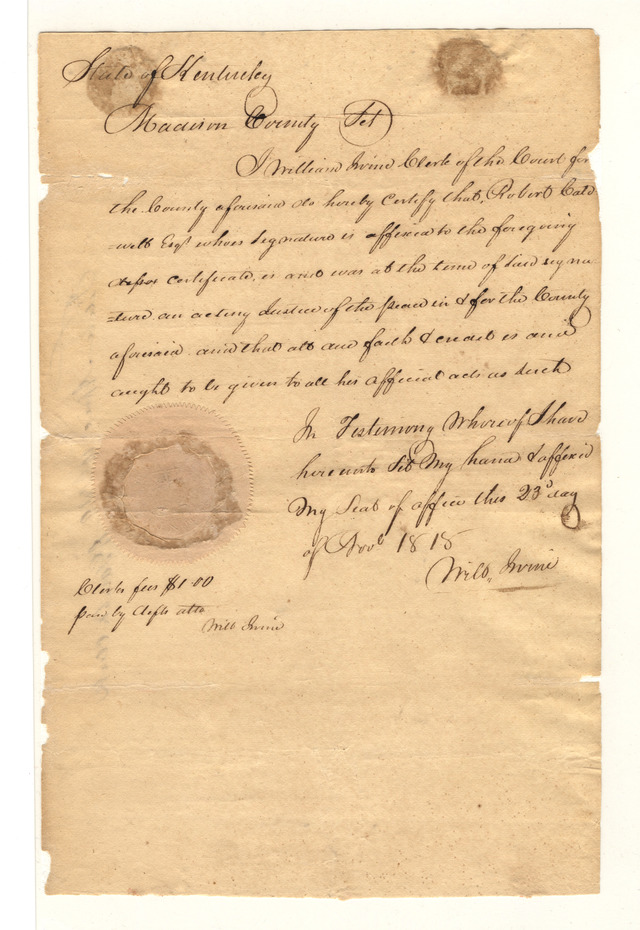 State of Kentucky
Madison County Sct
I William Irvine Clerk of the Court for
the County aforesaid do hereby certify that, Robert Cald
=well Esqr whose signature is affixed to the foregoing
certificate, is and was at the time of said signa
=ture an acting Justice of the peace in & for the County
aforesaid and that all due faith & credit is and
ought to be given to all his official acts as such
In Testimony Whereof I have
hereunto Set My hand & affixed
My Seal of office this 23d day
of Novr 1818
Will. Irvine
Clerks fees $1.00
paid by defts atto
Will Irvine